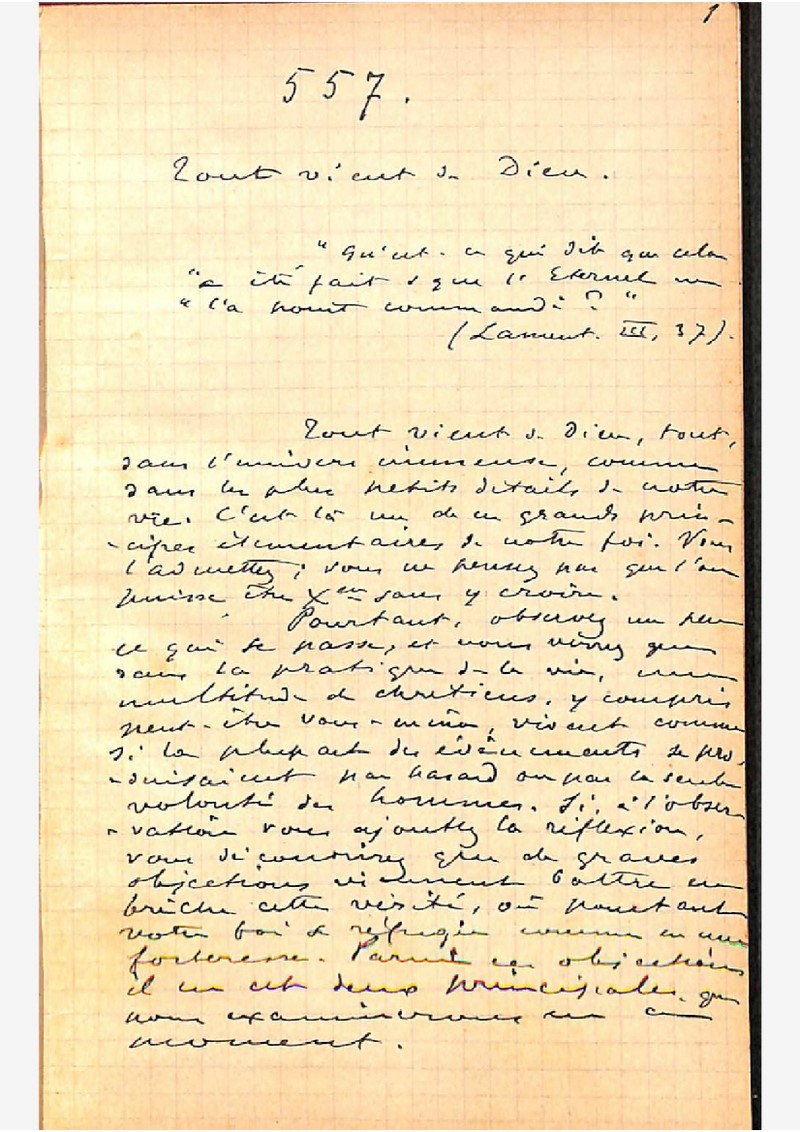 1
557.
Tout vient de Dieu.
"Qu'est-ce qui dit que cela
"a été fait & que l'Eternel ne
"l'a point commandé?"
(Lament. III, 37).
Tout vient de Dieu, tout,
dans l'univers immense, comme
dans les plus petits détails de notre
vie. C'est là un de ces grands prin-
-cipes élémentaires de notre foi. Vous
l'admettez; vous ne pensez pas que l'on
puisse être Xen sans y croire.
Pourtant, observez un peu
ce qui se passe, et vous verrez que
dans la pratique de la vie, une
multitude de chrétiens, y compris
peut-être vous-même, vivent comme
si la plupart des événements se pro-
-duisaient par hasard ou par la seule
volonté des hommes. Si, à l'obser-
-vation vous ajoutez la réflexion,
vous découvrirez que de graves
objections viennent battre en
brèche cette vérité, où pourtant
votre foi se réfugie comme en une
forteresse. Parmi ces objections
il en est deux principales, que
nous examinerons en ce
moment.